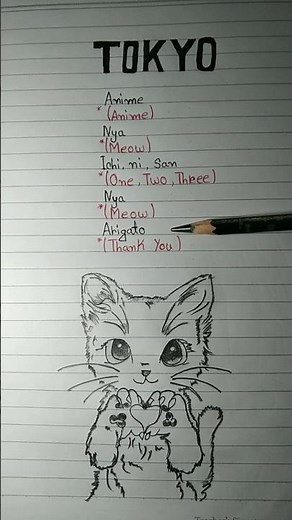 TOKYO
Anime
*(Anime)
Nya
*(Meow)
Ichi, ni, San
*(One, Two, Three)
Nya
*(Meow)
Arigato
*(Thank You)